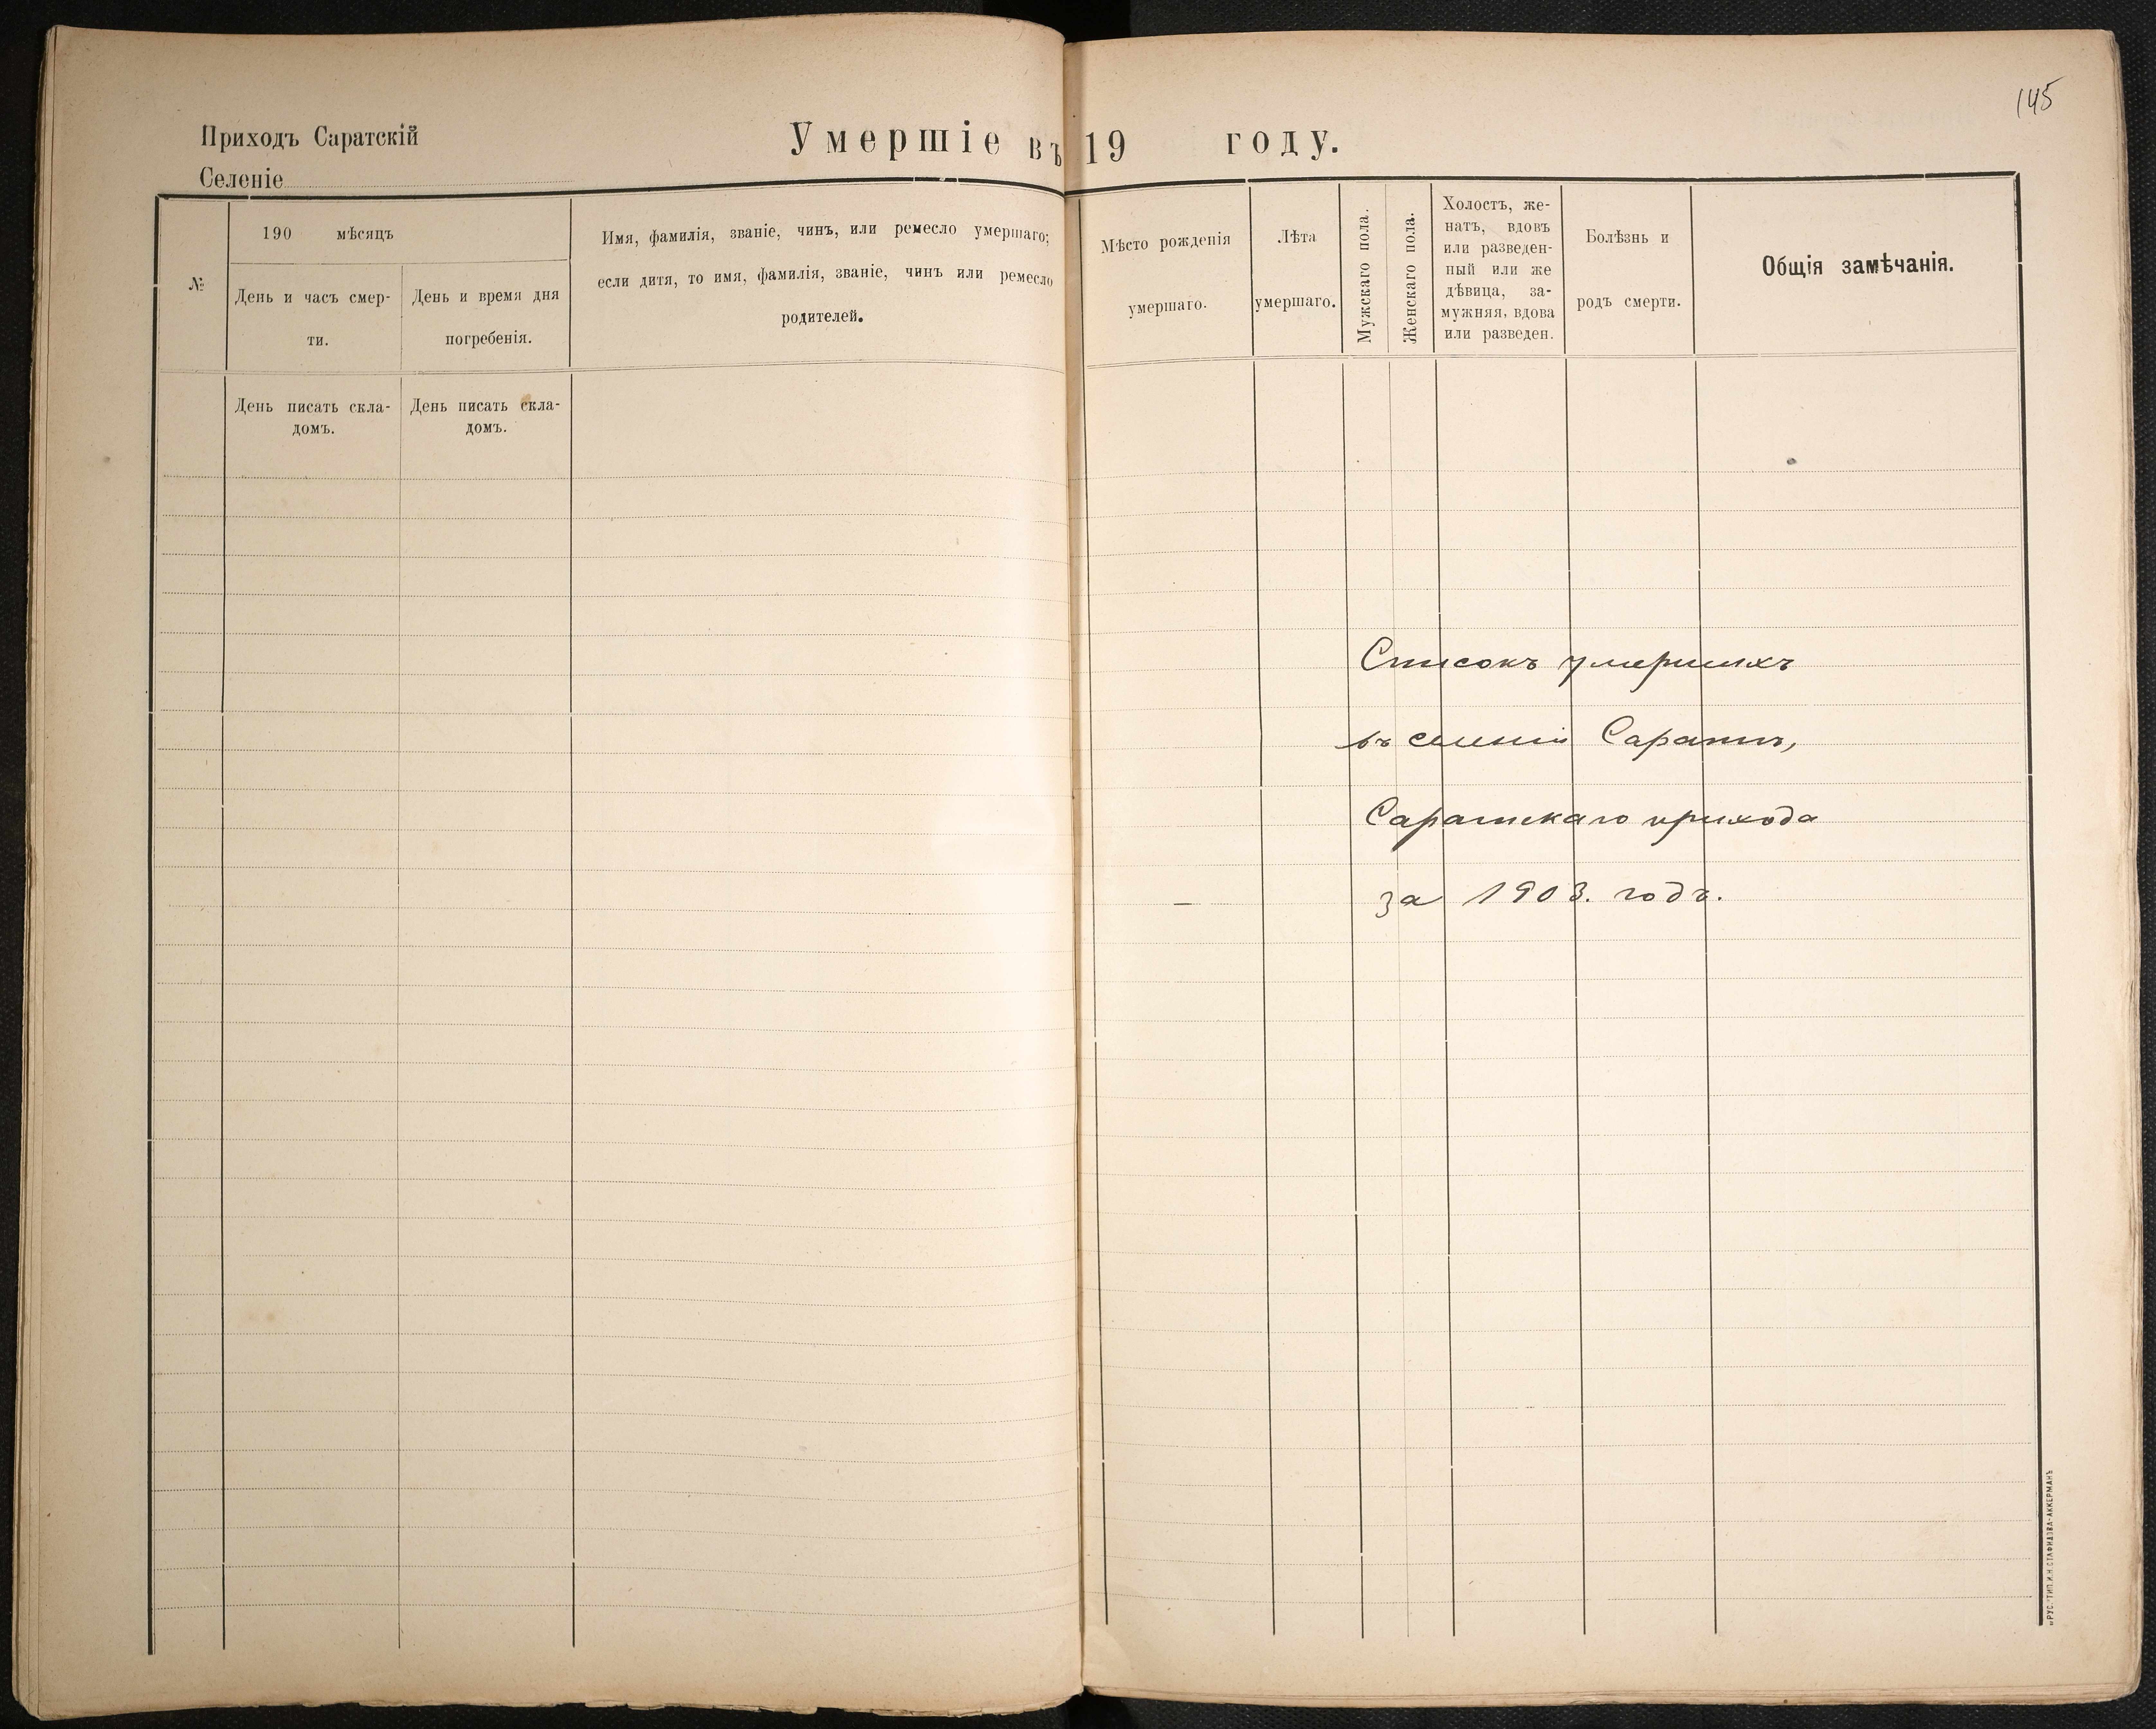 145
Приходъ Саратскій
Умершіе въ 19 году.
Селеніе
№
190 мѣсяцъ
День и часъ смер-
ти.
День и время дня
погребенія.
Имя, фамилія, званіе, чинъ, или ремесло умершаго;
если дитя, то имя, фамилія, званіе, чинъ или ремесло
родителей.
Мѣсто рожденія
умершаго.
Лѣта
умершаго.
Мужскаго пола.
Женскаго пола.
Холостъ, же-
натъ, вдовъ
или разведен-
ный или же
дѣвица, за-
мужняя, вдова
или разведен.
Болѣзнь и
родъ смерти.
Общія замѣчанія.
День писать скла-
домъ.
День писать скла-
домъ.
Списокъ умершихъ
въ селеніи Саратѣ,
Саратскаго прихода
за 1903. годъ.
„РУС.“ ТИП. И.Н. СТАФИДОВА-АККЕРМАНЪ